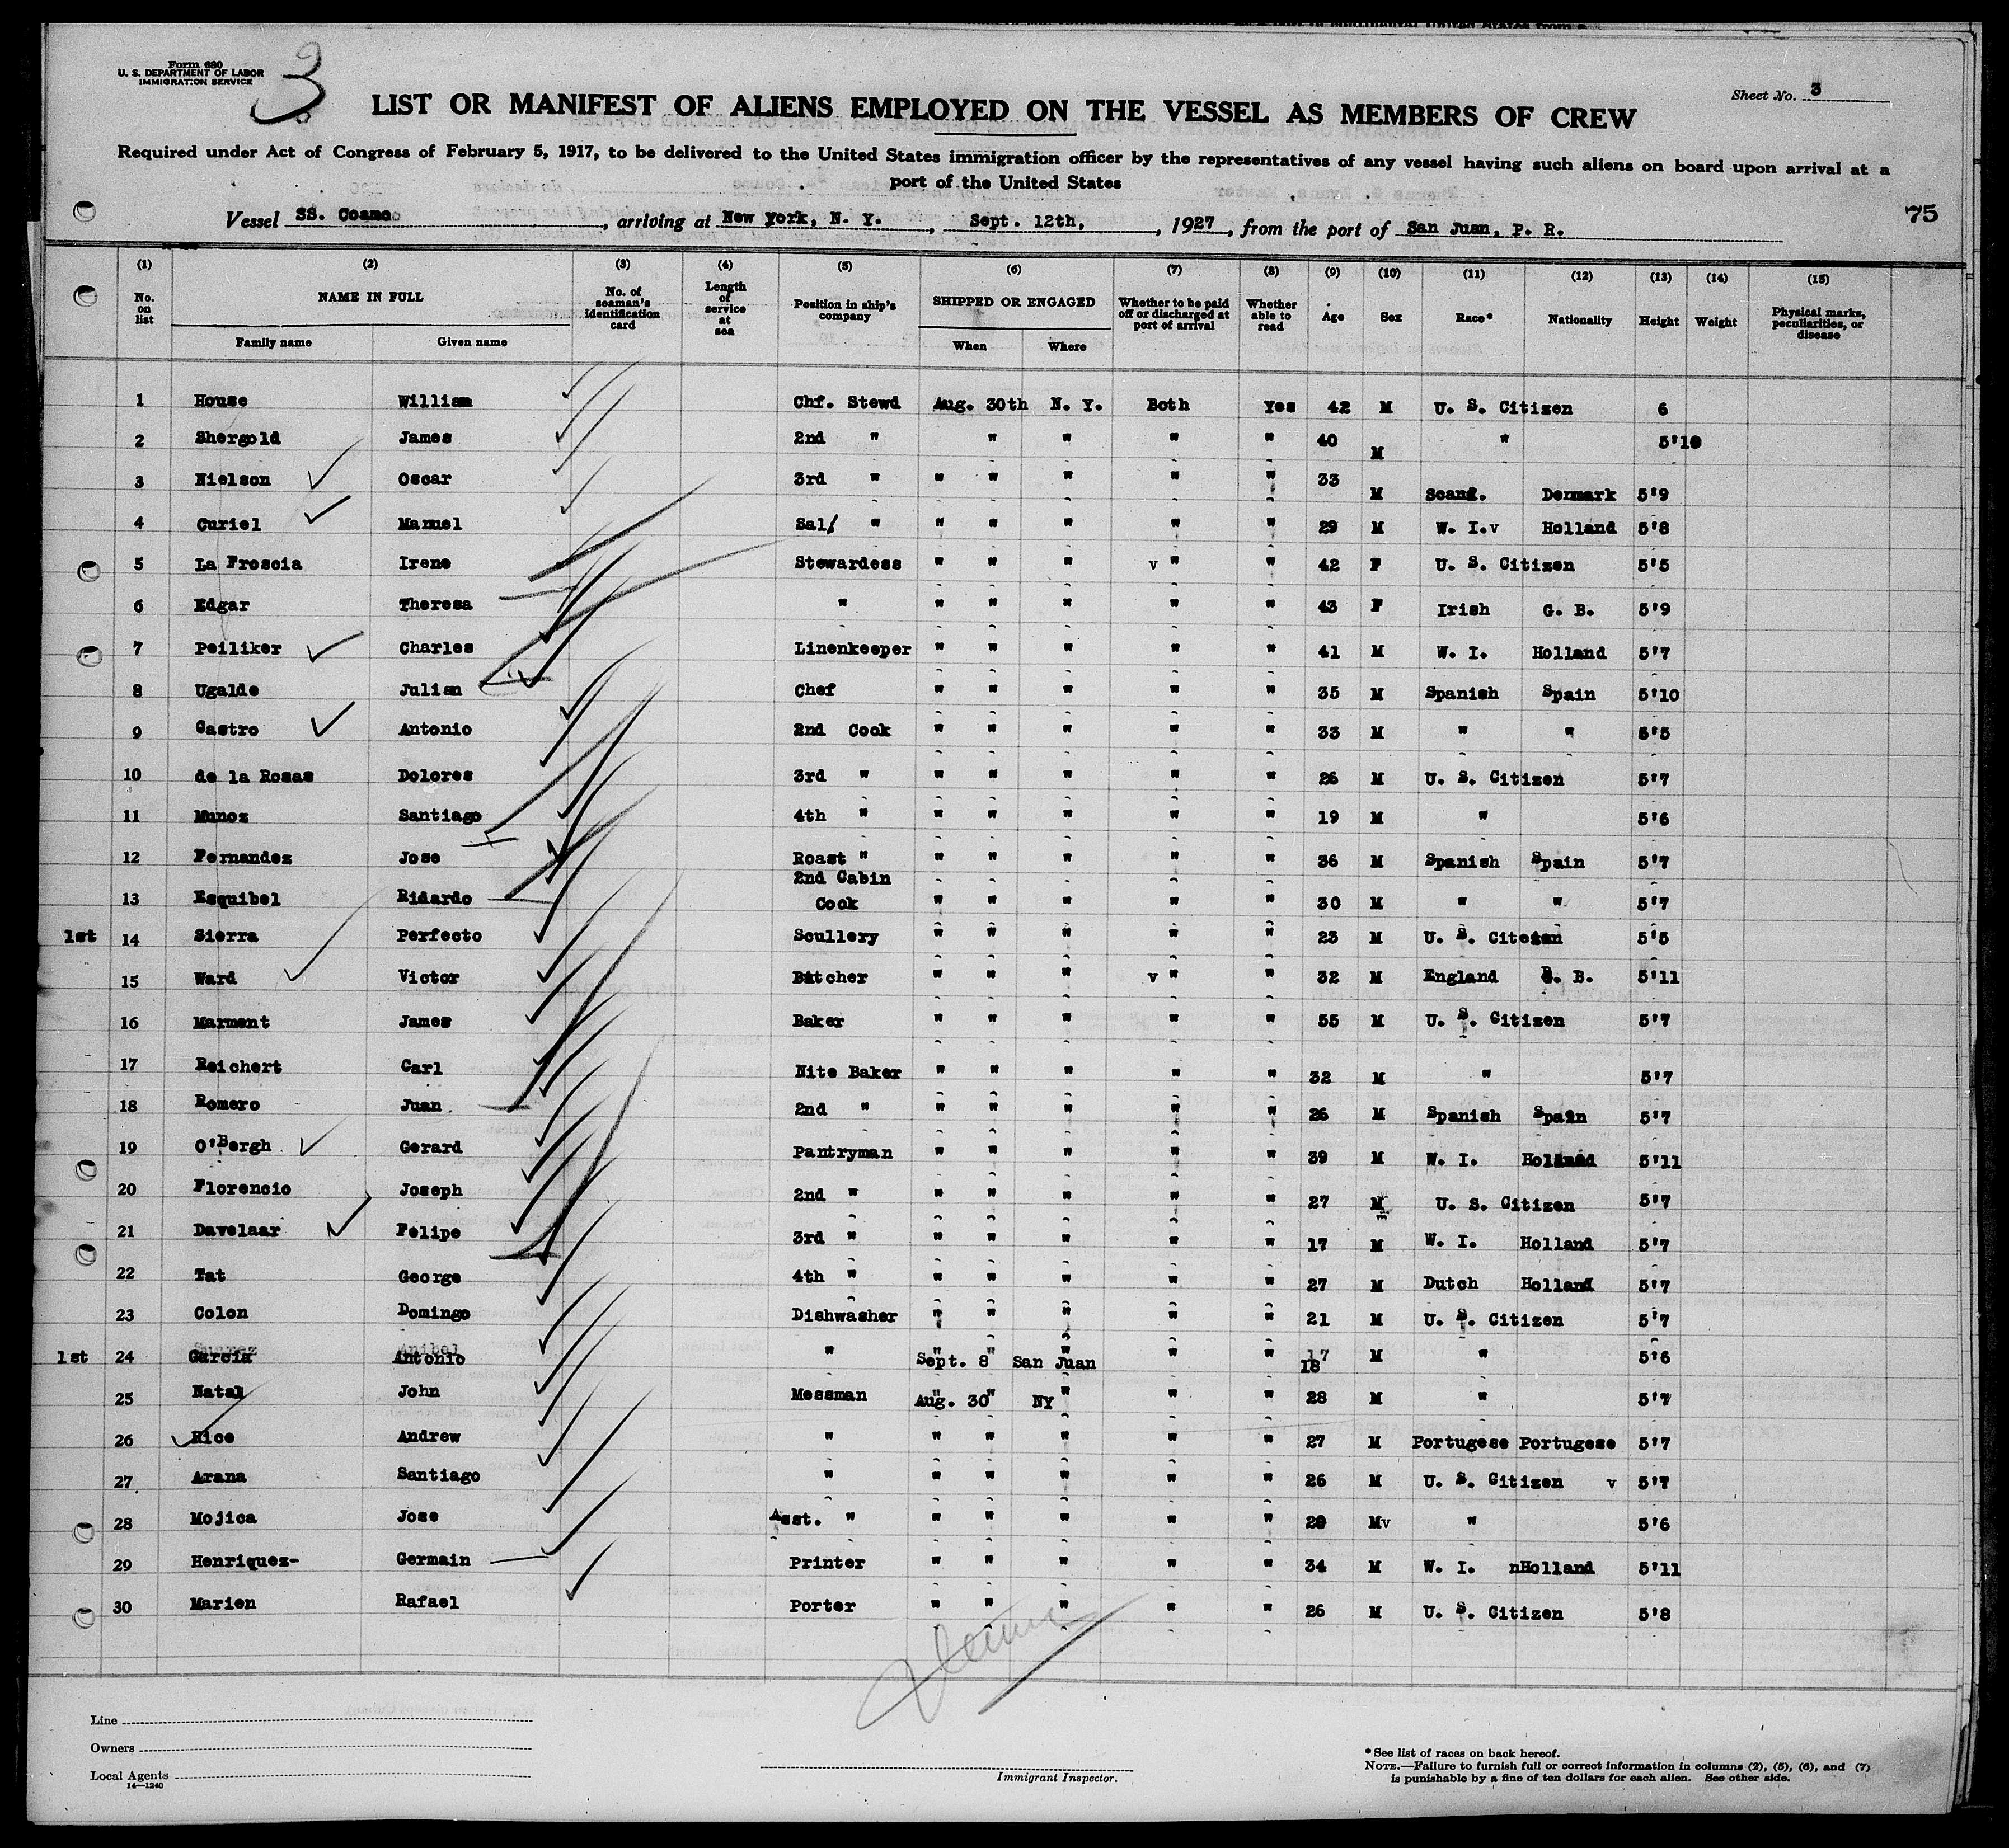 Form 680
U. S. DEPARTMENT OF LABOR
IMMIGRATION SERVICE
3
Sheet No. 3
LIST OR MANIFEST OF ALIENS EMPLOYED ON THE VESSEL AS MEMBERS OF CREW
Required under Act of Congress of February 5, 1917, to be delivered to the United States immigration officer by the representatives of any vessel having such aliens on board upon arrival at a
port of the United States
75
Vessel SS. Coamo, arriving at New York, N. Y., Sept. 12th, 1927, from the port of San Juan, P. R.
(1) (2) (3) (4) (5) (6) (7) (8) (9) (10) (11) (12) (13) (14) (15)
No. on list NAME IN FULL Family name Given name No. of seaman's identification card Length of service at sea Position in ship's company SHIPPED OR ENGAGED When Where Whether to be paid off or discharged at port of arrival Whether able to read Age Sex Race* Nationality Height Weight Physical marks, peculiarities, or disease
1 House William Chf. Stewd Aug. 30th N. Y. Both Yes 42 M U. S. Citizen 6
2 Shergold James 2nd " " " " " 40 M " 5'10
3 Nielson Oscar 3rd " " " " " " 33 M Scand. Denmark 5'9
4 Curiel Manuel Sal/ " " " " " " 29 M W. I.v Holland 5'8
5 La Froscia Irene Stewardess " " " v " " 42 F U. S. Citizen 5'5
6 Edgar Theresa " " " " " " 43 F Irish G. B. 5'9
7 Peiliker Charles Linenkeeper " " " " " 41 M W. I. Holland 5'7
8 Ugalde Julian Chef " " " " " 35 M Spanish Spain 5'10
9 Castro Antonio 2nd Cook " " " " " 33 M " " 5'5
10 de la Rosas Dolores 3rd " " " " " " 26 M U. S. Citizen 5'7
11 Munoz Santiago 4th " " " " " " 19 M " 5'6
12 Fernandez Jose Roast " " " " " " 36 M Spanish Spain 5'7
13 Esquibel Ridardo 2nd Cabin Cook " " " " " 30 M " " 5'7
1st 14 Sierra Perfecto Scullery " " " " " 23 M U. S. Citezen 5'5
15 Ward Victor Butcher " " " v " " 32 M England G. B. 5'11
16 Marment James Baker " " " " " 55 M U. S. Citizen 5'7
17 Reichert Carl Nite Baker " " " " " 32 M " 5'7
18 Romero Juan 2nd " " " " " " 26 M Spanish Spain 5'7
19 O'Bergh Gerard Pantryman " " " " " 39 M W. I. Holland 5'11
20 Florencio Joseph 2nd " " " " " " 27 M U. S. Citizen 5'7
21 Davelaar Felipe 3rd " " " " " " 17 M W. I. Holland 5'7
22 Tat George 4th " " " " " " 27 M Dutch Holland 5'7
23 Colon Domingo Dishwasher " " " " " 21 M U. S. Citizen 5'7
1st 24 Suarez Garcia Anibel Antonio " " " " Sept. 8 San Juan " " 17 18 M " 5'6
25 Natal John Messman " " " Aug. 30 NY " " 28 M " 5'7
26 Rice Andrew " " " " " " 27 M Portugese Portugese 5'7
27 Arana Santiago " " " " " " 26 M U. S. Citizen v 5'7
28 Mojica Jose Asst. " " " " " " 29 Mv " 5'6
29 Henriquez- Germain Printer " " " " " 34 M W. I. nHolland 5'11
30 Marien Rafael Porter " " " " " 26 M U. S. Citizen 5'8
Line
Owners
Local Agents
14—1240
Immigrant Inspector.
* See list of races on back hereof.
NOTE.—Failure to furnish full or correct information in columns (2), (5), (6), and (7)
is punishable by a fine of ten dollars for each alien. See other side.